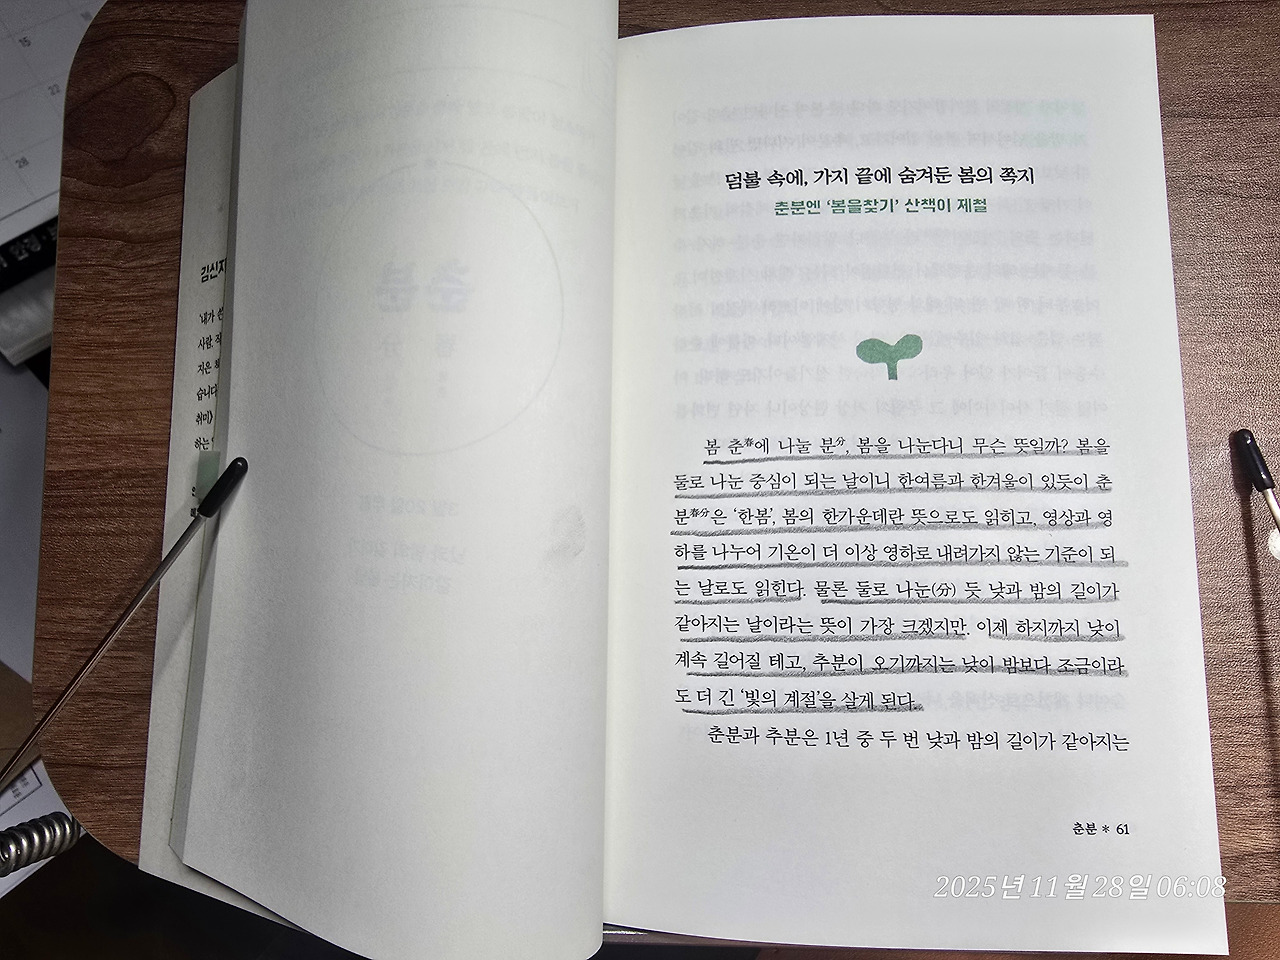 15
22
29
김신지
'내가 쓴
사람, 작
지은 책
습니다
취미》
하는
덤불 속에, 가지 끝에 숨겨둔 봄의 쪽지
춘분엔 '봄을찾기' 산책이 제철
봄 춘春에 나눌 분分, 봄을 나눈다니 무슨 뜻일까? 봄을
둘로 나눈 중심이 되는 날이니 한여름과 한겨울이 있듯이 춘
분春分은 '한봄', 봄의 한가운데란 뜻으로도 읽히고, 영상과 영
하를 나누어 기온이 더 이상 영하로 내려가지 않는 기준이 되
는 날로도 읽힌다. 물론 둘로 나눈(分) 듯 낮과 밤의 길이가
같아지는 날이라는 뜻이 가장 크겠지만. 이제 하지까지 낮이
계속 길어질 테고, 추분이 오기까지는 낮이 밤보다 조금이라
도 더 긴 '빛의 계절'을 살게 된다.
춘분과 추분은 1년 중 두 번 낮과 밤의 길이가 같아지는
춘분 * 61
2025년 11월 28일 06:08